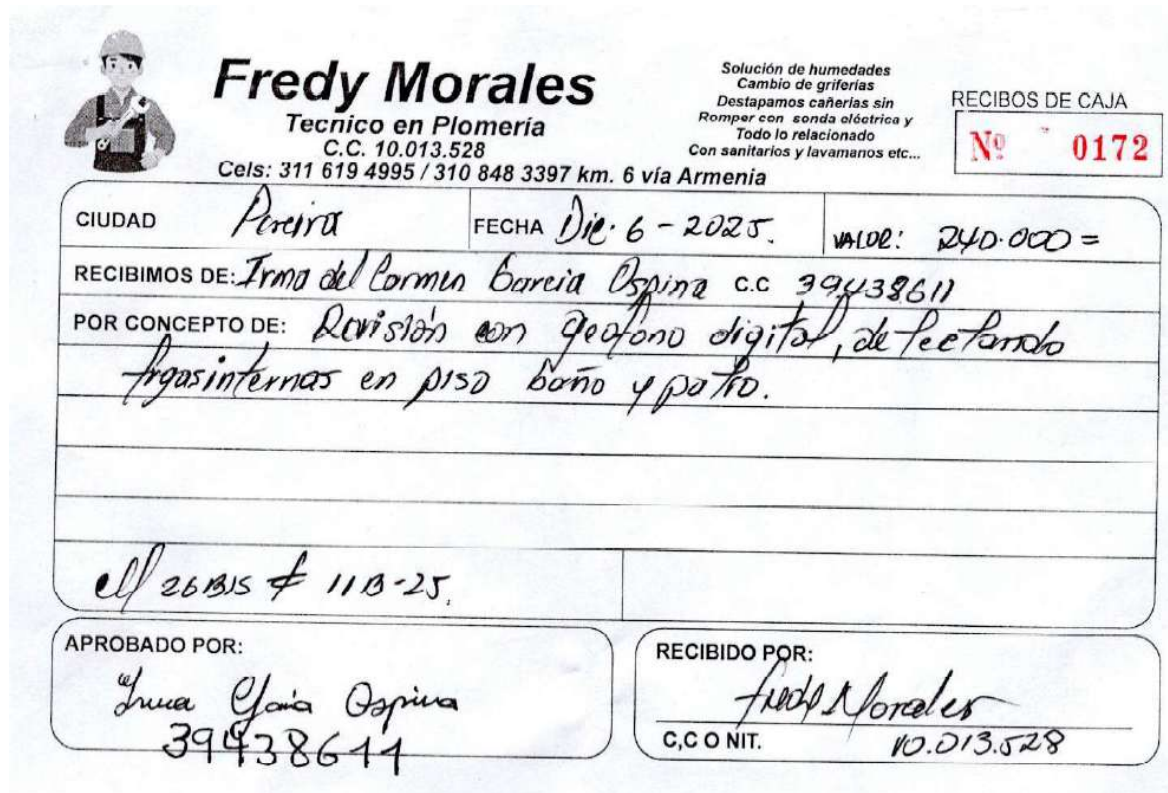 Fredy Morales
Tecnico en Plomería
C.C. 10.013.528
Cels: 311 619 4995 / 310 848 3397 km. 6 vía Armenia
Solución de humedades
Cambio de griferías
Destapamos cañerias sin
Romper con sonda eléctrica y
Todo lo relacionado
Con sanitarios y lavamanos etc...
RECIBOS DE CAJA
Nº 0172
CIUDAD Pereira FECHA Dic. 6 - 2025. VALOR: 240.000 =
RECIBIMOS DE: Irma del Carmen Garcia Ospina C.C 39438611
POR CONCEPTO DE: Revisión con geofono digital, detectando
fugas internas en piso baño y patio.
cll 26BIS # 11B-25.
APROBADO POR:
Irma Ospina
39438611
RECIBIDO POR:
Fredy Morales
C,C O NIT. 10.013.528